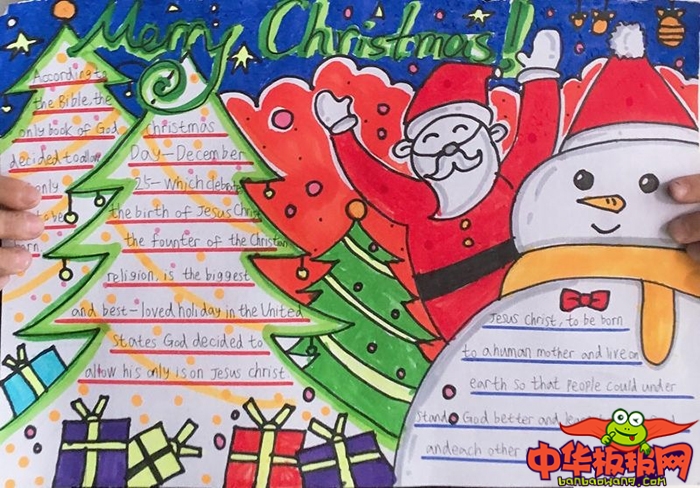 Merry Christmas!
According to
the Bible, the
only book of God
decided to allow
only
to be
orn.
christmas
Day-December
25-which clebrate
the birth of Jesus Christ
the founter of the Christian
religion, is the biggest
and best-loved holiday in the United
States God decided to
allow his only is on Jesus christ
Jesus Christ, to be born
to a human mother and live on
earth so that people could under
stand God better and learn
andeach other
中华板报网
banbaowang.com